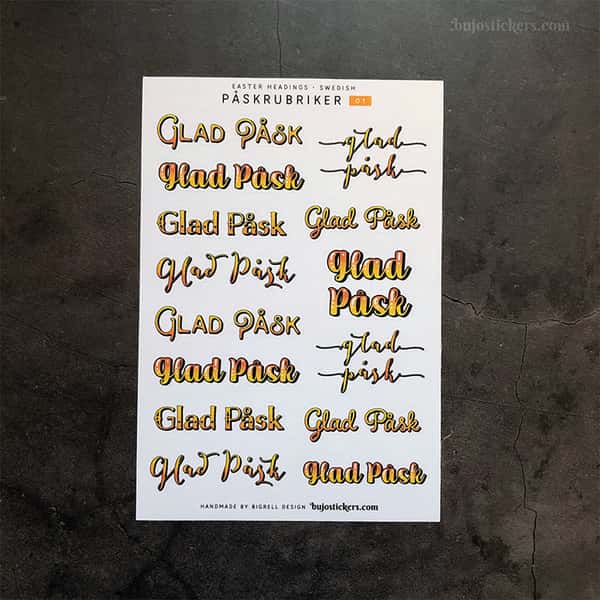 bujostickers.com
EASTER HEADINGS · SWEDISH
PÅSKRUBRIKER 01
GLAD PÅSK
Glad Påsk
Glad Påsk
Glad Påsk
GLAD PÅSK
Glad Påsk
Glad Påsk
Glad Påsk
glad
påsk
Glad Påsk
Glad
Påsk
glad
påsk
Glad Påsk
Glad Påsk
HANDMADE BY BIGRELL DESIGN bujostickers.com